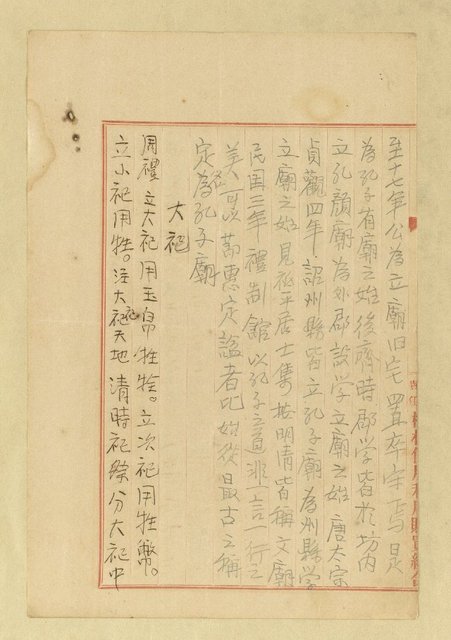 至十七年公為立廟旧宅置卒守焉是
為孔子有廟之始後齊時郡学皆於坊内
立孔顏廟為外郡設学立廟之始唐太宗
貞觀四年詔州縣皆立孔子廟為州縣学
立廟之始見祗平居士集按明清皆稱文廟
民国三年禮制館以孔子之道非一言一行之
美可以節惠定諡者比始從最古之稱
定為孔子廟
大祀
周禮立大祀用玉帛牲牷。立次祀用牲幣。
立小祀用牲。注大祀天地清時祀祭分大祀中